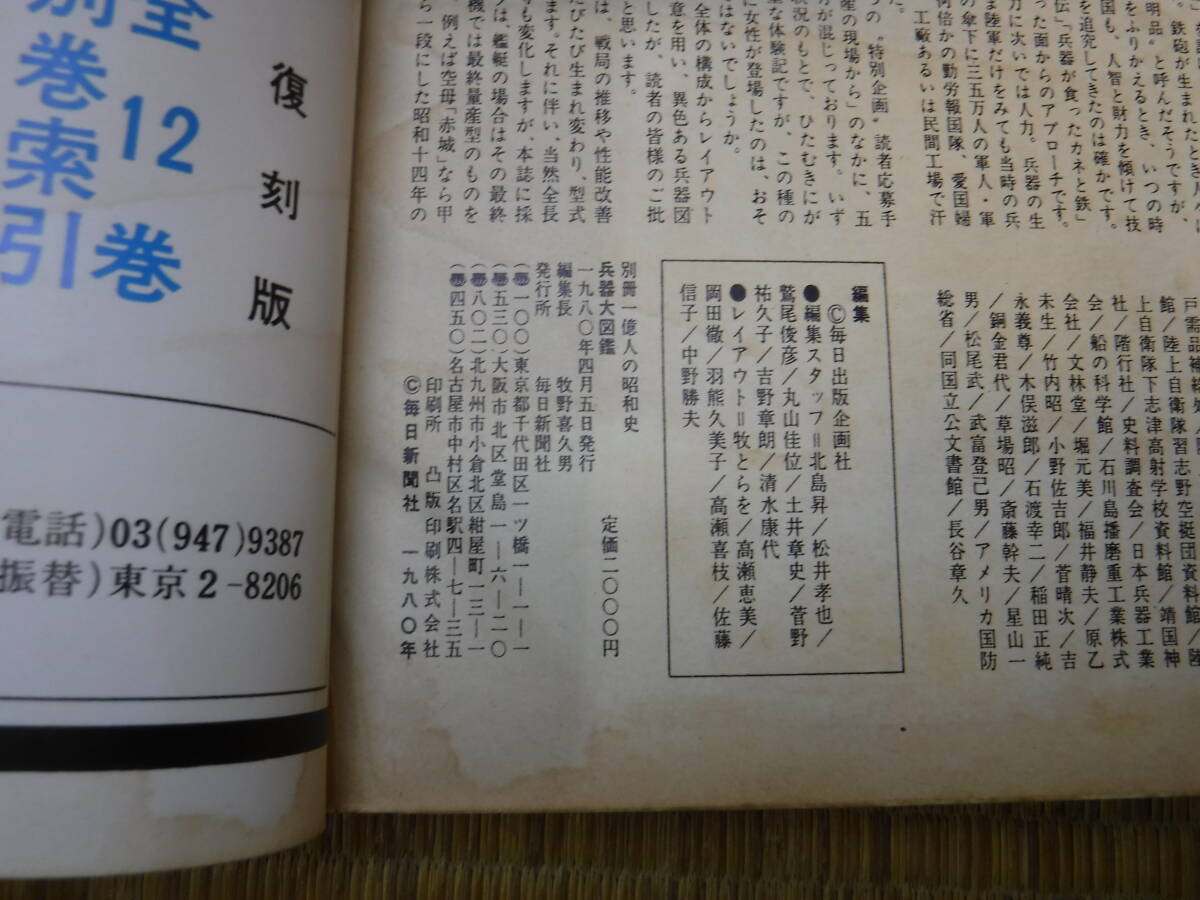 鉄砲が生まれたとき人々は
明品〟と呼んだそうですが、
をふりかえるとき、いつの時
国も、人智と財力を傾けて技
を追究してきたのは確かです。
伝」「兵器が食ったカネと鉄」
った面からのアプローチです。
力に次いでは人力。兵器の生
ま陸軍だけをみても当時の兵
の傘下に三五万人の軍人・軍
何倍かの勤労報国隊、愛国婦
工廠あるいは民間工場で汗
た。
つの〝特別企画〟読者応募手
産の現場から」のなかに、五
が混じっております。いず
状況のもとで、ひたむきにが
な体験記ですが、この種の
に女性が登場したのは、おそ
はないでしょうか。
全体の構成からレイアウト
意を用い、異色ある兵器図
したが、読者の皆様のご批
と思います。
は、戦局の推移や性能改善
たびたび生まれ変わり、型式
ます。それに伴い、当然全長
も変化しますが、本誌に採
は、艦艇の場合はその最終
機では最終量産型のものを
、例えば空母「赤城」なら甲
ら一段にした昭和十四年の
館/陸上自衛隊習志野空挺団資料館/陸
上自衛隊下志津高射学校資料館/靖国神
社/階行社/史料調査会/日本兵器工業
会/船の科学館/石川島播磨重工業株式
会社/文林堂/堀元美/福井静夫/原乙
未生/竹内昭/小野佐吉郎/菅晴次/吉
永義尊/木俣滋郎/石渡幸二/稲田正純
/銅金君代/草場昭/斎藤幹夫/星山一
男/松尾武/武富登己男/アメリカ国防
総省/同国立公文書館/長谷章久
編集
©毎日出版企画社
●編集スタッフ=北島昇/松井孝也/
鷲尾俊彦/丸山佳位/土井章史/菅野
祐久子/吉野章朗/清水康代
●レイアウト=牧とらを/高瀬恵美/
岡田徹/羽熊久美子/高瀬喜枝/佐藤
信子/中野勝夫
別冊一億人の昭和史
兵器大図鑑 定価二〇〇〇円
一九八〇年四月五日発行
編集長 牧野喜久男
発行所 毎日新聞社
(〒一〇〇)東京都千代田区一ツ橋一―一―一
(〒五三〇)大阪市北区堂島一―六―二〇
(〒八〇二)北九州市小倉北区紺屋町一三―一
(〒四五〇)名古屋市中村区名駅四―七―三五
印刷所 凸版印刷株式会社
©毎日新聞社 一九八〇年
復刻版
全12巻
別巻索引
電話)03(947)9387
振替)東京2-8206